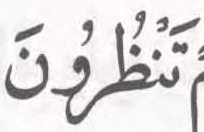 تَنْظُرُونَ